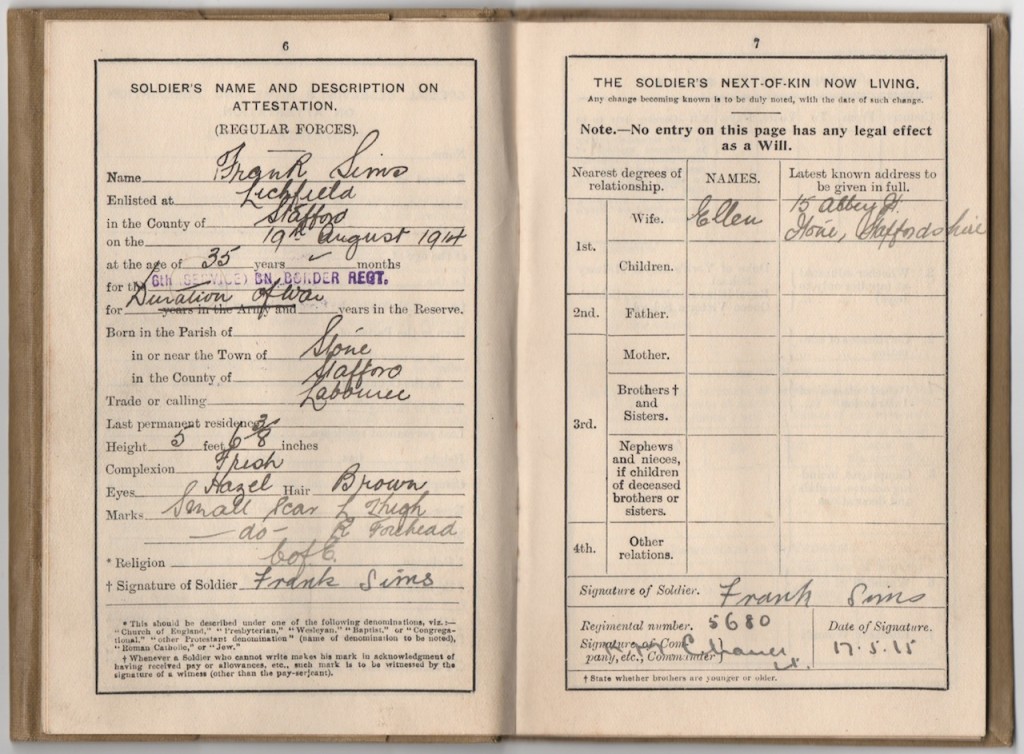 6
SOLDIER'S NAME AND DESCRIPTION ON
ATTESTATION.
(REGULAR FORCES).
Name Frank Sims
Enlisted at Lichfield
in the County of Stafford
on the 19th August 1914
at the age of 35 years months
for the 6th (SERVICE) BN BORDER REGT.
for Duration of War years in the Army and years in the Reserve.
Born in the Parish of
in or near the Town of Stone
in the County of Stafford
Trade or calling Labourer
Last permanent residence
Height 5 feet 6 3/8 inches
Complexion Fresh
Eyes Hazel Hair Brown
Marks Small Scar L Thigh
—do— R Forehead
* Religion C of E.
† Signature of Soldier Frank Sims
* This should be described under one of the following denominations, viz.:—
"Church of England," "Presbyterian," "Wesleyan," "Baptist," or "Congrega-
tional," "other Protestant denomination" (name of denomination to be noted),
"Roman Catholic," or "Jew."
† Whenever a Soldier who cannot write makes his mark in acknowledgment of
having received pay or allowances, etc., such mark is to be witnessed by the
signature of a witness (other than the pay-serjeant).
7
THE SOLDIER'S NEXT-OF-KIN NOW LIVING.
Any change becoming known is to be duly noted, with the date of such change.
Note.—No entry on this page has any legal effect
as a Will.
Nearest degrees of
relationship.
NAMES.
Latest known address to
be given in full.
1st.
Wife.
Ellen
15 Abbey St.
Stone, Staffordshire
Children.
2nd.
Father.
3rd.
Mother.
Brothers †
and
Sisters.
Nephews
and nieces,
if children
of deceased
brothers or
sisters.
4th.
Other
relations.
Signature of Soldier. Frank Sims
Regimental number. 5680
Date of Signature.
17.5.15
Signature of Com-
pany, etc., Commander
† State whether brothers are younger or older.